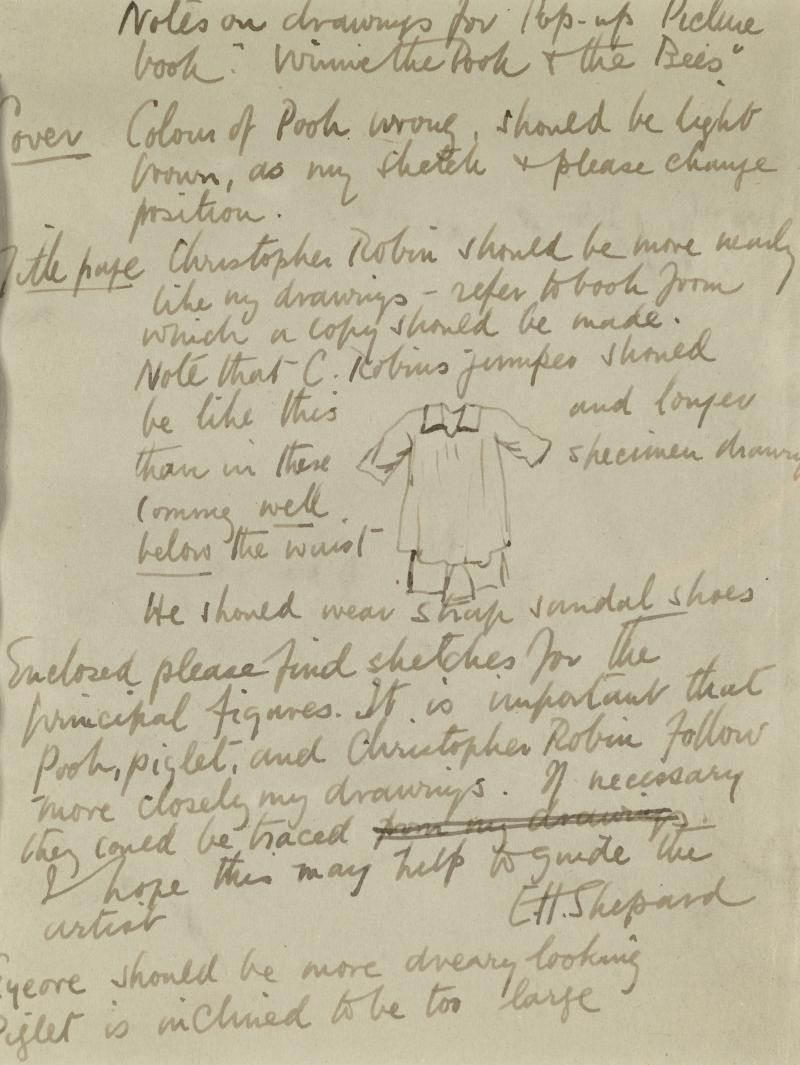 Notes on drawings for Pop-up Picture
book "Winnie the Pooh & the Bees"
Cover Colour of Pooh wrong, should be light
brown, as my sketch & please change
position.
Title page Christopher Robin should be more nearly
like my drawings – refer to book from
which a copy should be made.
Note that C. Robins jumper should
be like this and longer
than in these specimen drawing
coming well
below the waist
He should wear strap sandal shoes
Enclosed please find sketches for the
principal figures. It is important that
Pooh, piglet, and Christopher Robin follow
more closely my drawings. If necessary
they could be traced from my drawings.
I hope this may help to guide the
artist E.H. Shepard
Eyeore should be more dreary looking
Piglet is inclined to be too large